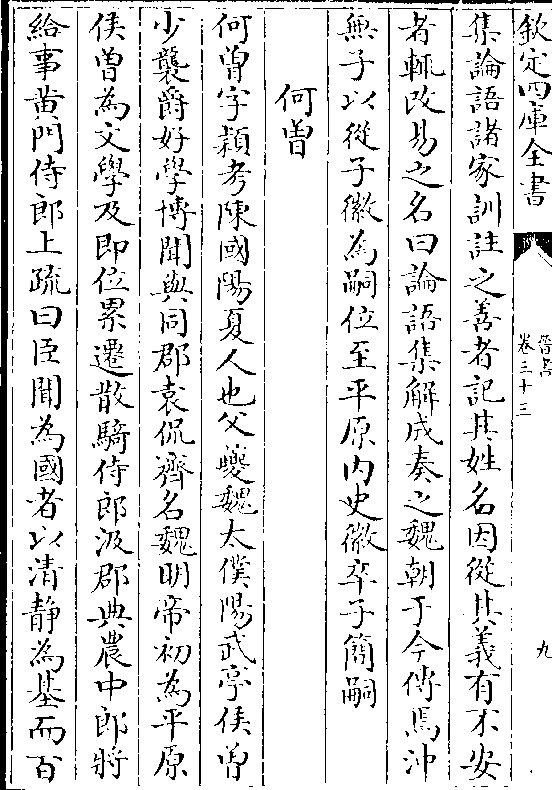 欽定四庫全書
晉書
卷三十三
九
集論語諸家訓註之善者記其姓名因從其義有不安
者輒改易之名曰論語集解成奏之魏朝于今傳焉沖
無子以從子徽為嗣位至平原內史徽卒子簡嗣
何曾
何曾字穎考陳國陽夏人也父夔魏太僕陽武亭侯曾
少襲爵好學博聞與同郡袁侃齊名魏明帝初為平原
侯曾為文學及即位累遷散騎侍郎汲郡典農中郎將
給事黃門侍郎上疏曰臣聞為國者以清静為基而百